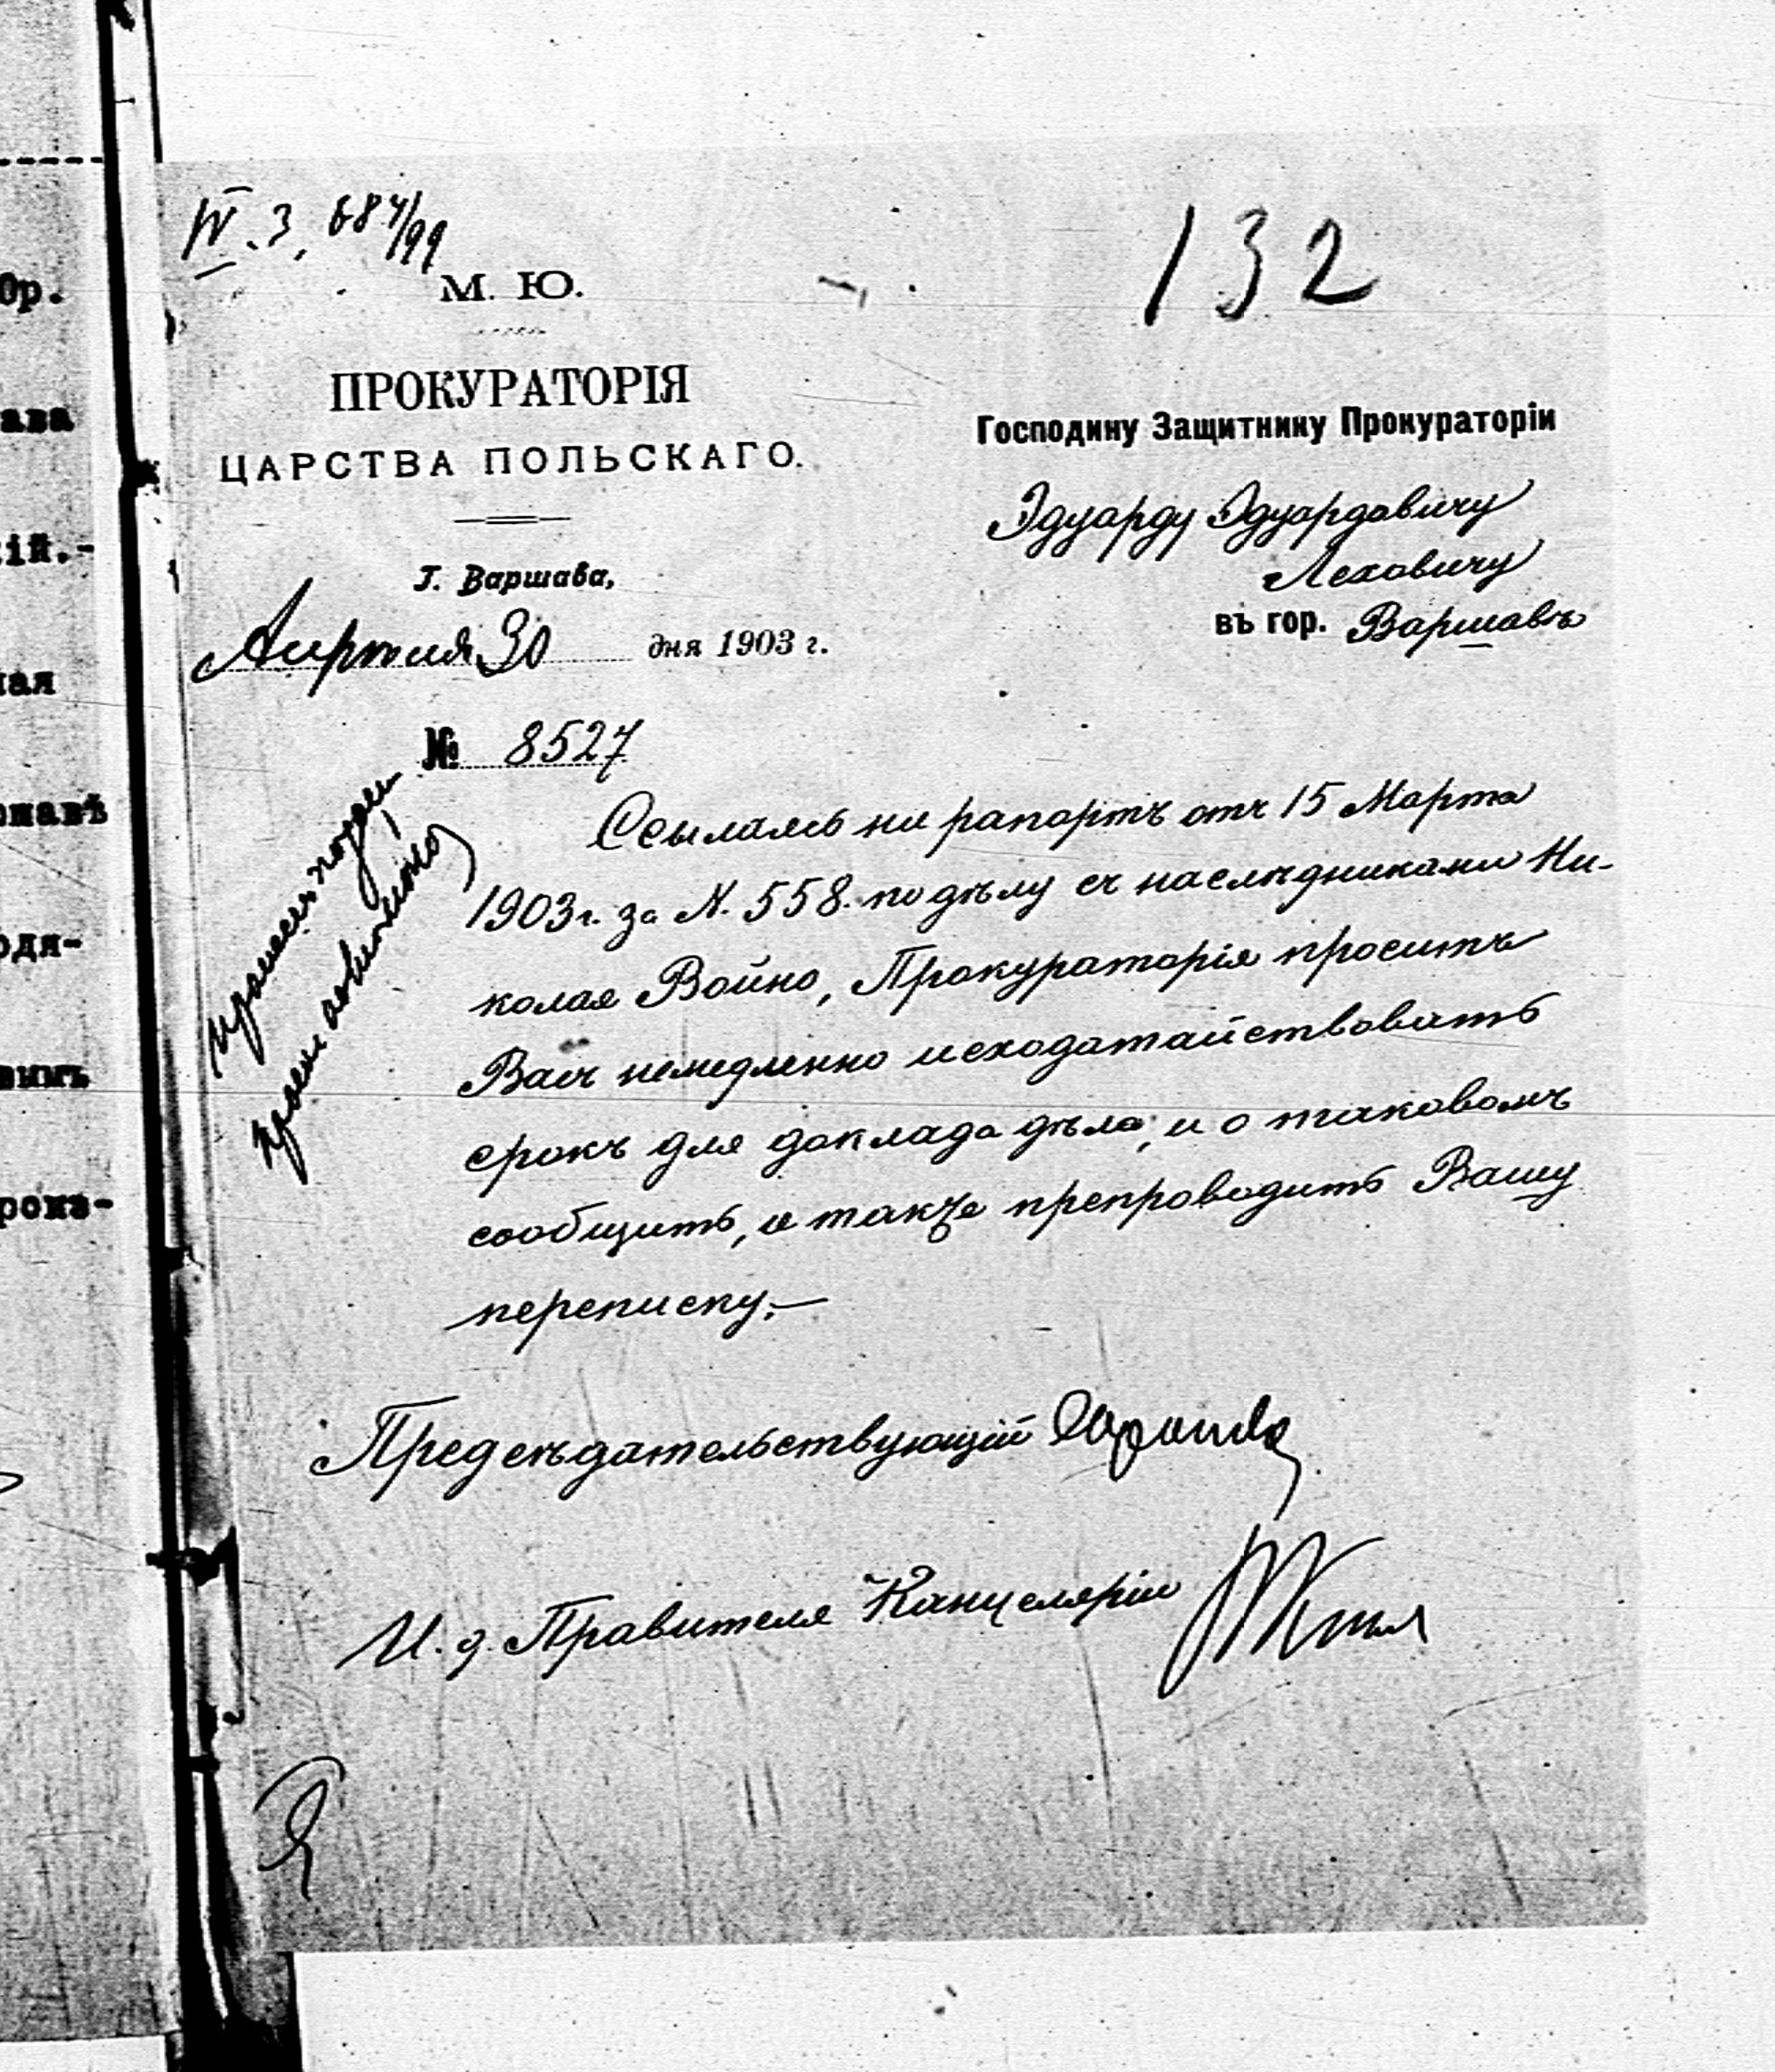 IV. 3, 684/99
132
М. Ю.
ПРОКУРАТОРІЯ
ЦАРСТВА ПОЛЬСКАГО.
Г. Варшава,
Апрѣля 30 дня 1903 г.
№ 8527
Господину Защитнику Прокураторіи
Эдуарду Эдуардовичу
Леховичу
въ гор. Варшавѣ
Ссылаясь на рапортъ отъ 15 Марта
1903 г. за N. 558 по дѣлу съ наслѣдниками Ни-
колая Войно, Прокураторія проситъ
Васъ немедленно исходатайствовать
срокъ для доклада дѣла, и о таковомъ
сообщить, а также препроводить Вашу
переписку.—
Предсѣдательствующій
И. д. Правителя Канцеляріи
Ор.
ава
кій.-
ная
одя-
вымъ